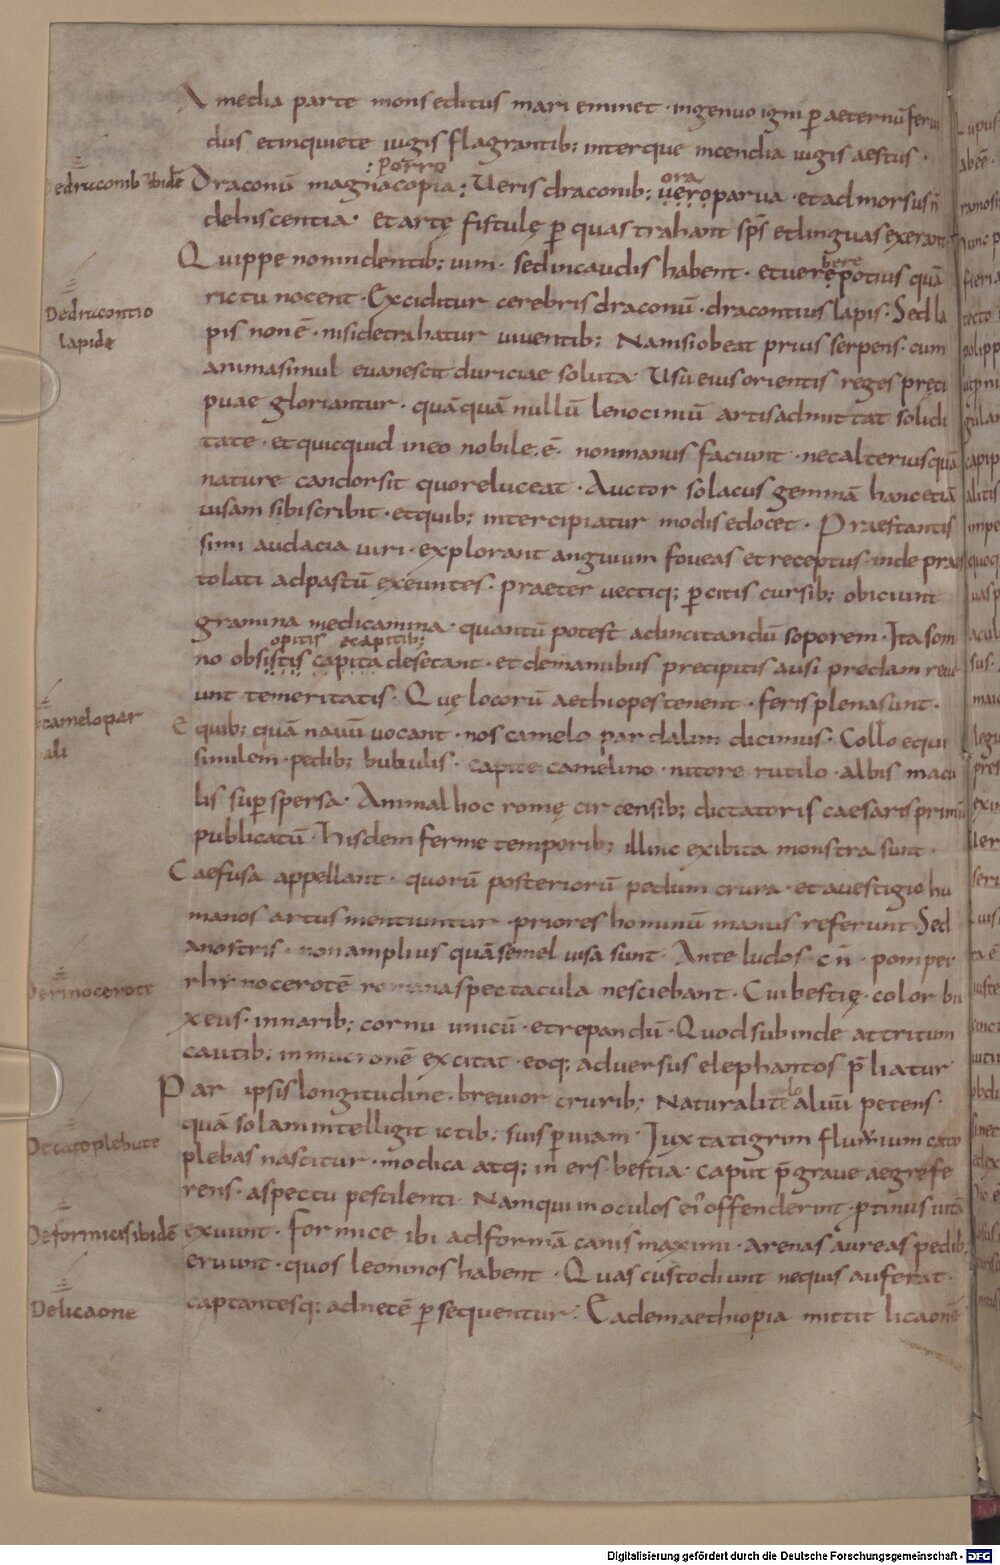 A media parte mons editus mari eminet · ingenuo igni p̄ aeternū ferui
dus et inquiete iugis flagrantib; interque incendia iugis aestus ·
: Porro
ora
edraconib ibidē
Draconū magna copia; Ueris draconib; uero parua · et ad morsus ñ
dehiscentia · et artę fistulę p̄ quas trahant sp̄s et linguas exerant
bere
Quippe non in dentib; uim · sed in caudis habent · et uere potius quā
Dedracontio
lapide
rictu nocent · Exciditur cerebris draconū · dracontius lapis · Sed la
pis non ē · nisi detrahatur uiuentib; Nam si obeat prius serpens · cum
anima simul euanescit duriciae soluta · Usu eius orientis reges pręci
puae gloriantur · quāquā nullū lenociniū artis admittat solidi
tate · et quicquid in eo nobile · ē · non manus faciunt · nec alterius quā
nature candor sit quo reluceat · Auctor solacus gemmā hanc etiā
uisam sibi scribit · et quib; intercipiatur modis edocet · Praestantis
simi audacia uiri · explorant anguium foueas et receptus · inde praes
tolati ad pastū exeuntes · praeter uectiq; p̄citis cursib; obiciunt
gramina medicamina · quantū potest ad incitandū soporem · Ita som
opitis excapitib;
no obsistis capita desecant · et de manubus precipitis ausi predam reue
unt temeritatis · Quę locorū aethiopes tenent · feris plena sunt ·
camelopar
ali
E quib; quā nauū uocant · nos camelo pardalim dicimus · Collo equi
similem · pedib; bubulis · capite camelino · nitore rutilo · albis macu
lis sup̄spersa · Animal hoc romę circensib; dictatoris caesaris primū
publicatū · Hisdem ferme temporib; illinc exibita monstra sunt ·
Caefusa appellant · quorū posteriorū pedum crura · et a uestigio hu
manos artus mentiuntur · priores hominū manus referunt · Sed
a nostris · non amplius quā semel uisa sunt · Ante ludos · c ñ · pompei
Dermocerote
rhynocerotē romana spectacula nesciebant · Cui bestię · color bu
xeus · in narib; cornu unicū · et repandū · Quod subinde attritum
cautib; in mucronē excitat · eoq; aduersus elephantos p̄liatur
lo
Par ipsis longitudine · breuior crurib; Naturalite aluū petens ·
Decatoplebate
quā solam intelligit ictib; suis p̄uiam · Juxta tigrim fluuium cato
plebas nascitur · modica atq; iners bestia · caput p̄graue aegre fe
rens · aspectu pestilenti · Nam qui in oculos ei offenderint · p̄tinus uitā
Deformicis ibidē
exuunt · formice ibi ad formā canis maximi · arenas aureas pedib;
eruunt · quos leoninos habent · Quas custodiunt nequis auferat ·
Delicaone
captantesq; ad necē p̄sequentur · Eadem aethiopia mittit licaonē
Digitalisierung gefördert durch die Deutsche Forschungsgemeinschaft - DFG